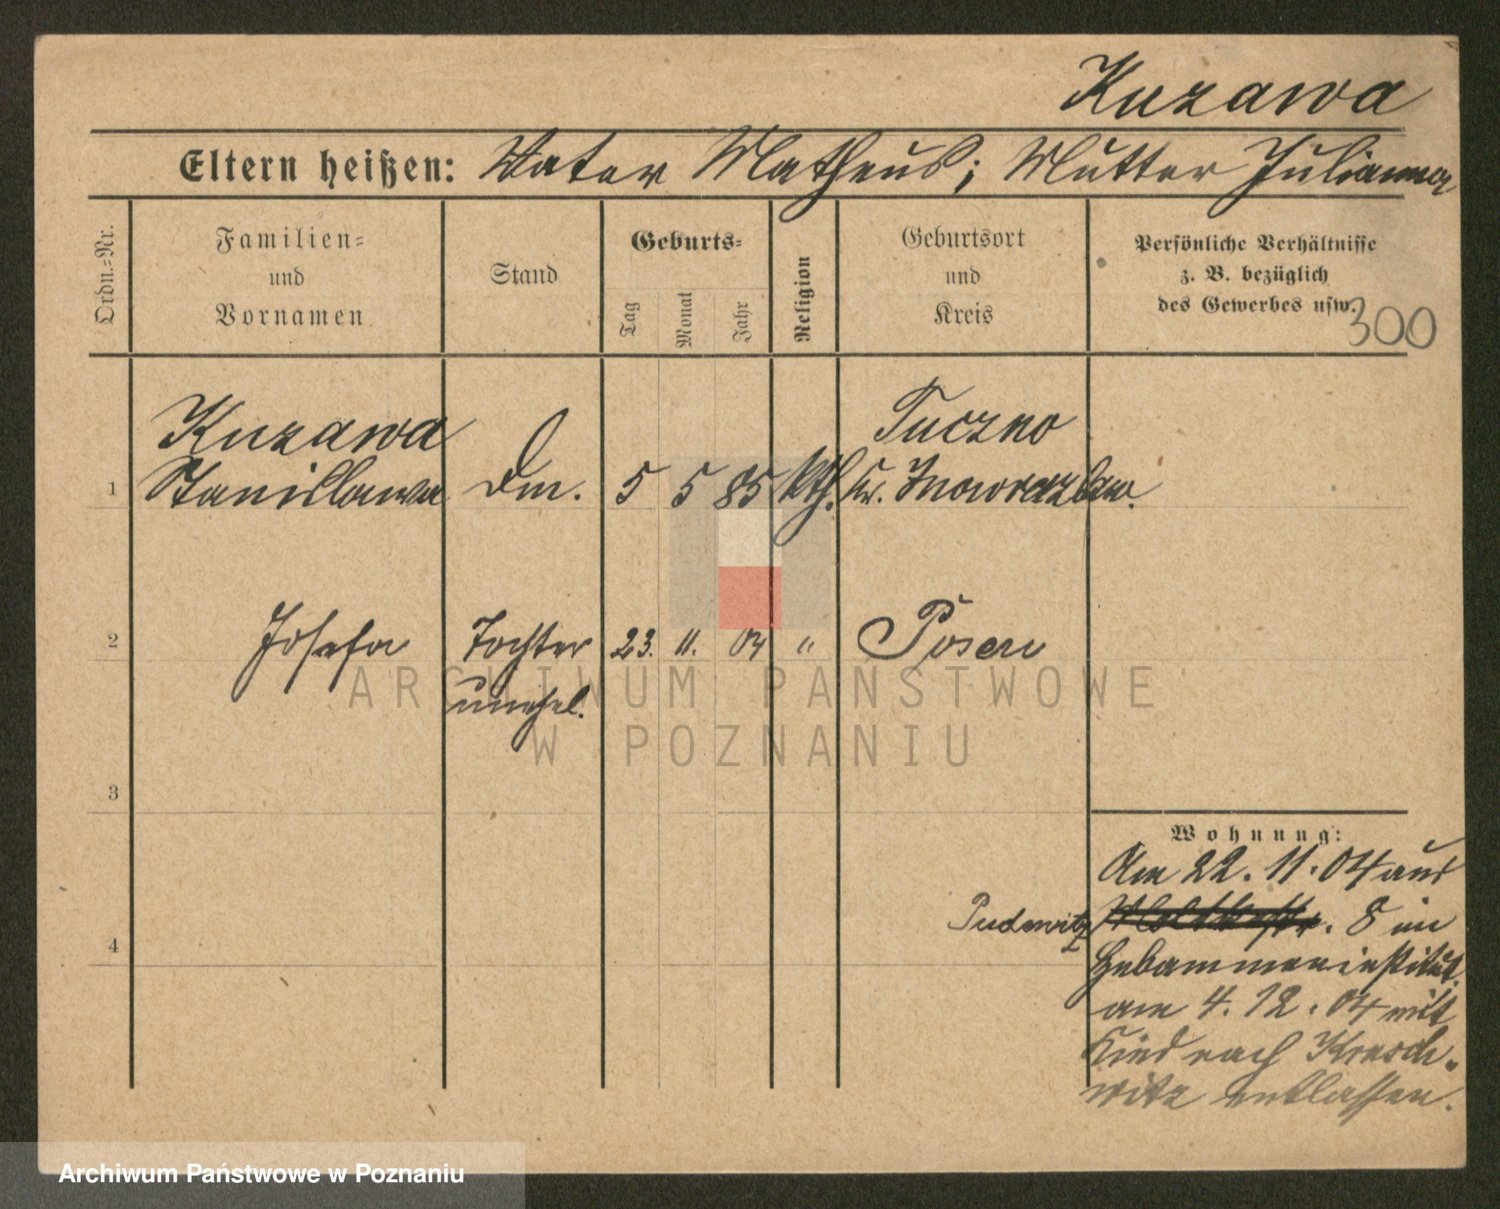 Kuzawa
Eltern heißen: Vater Matheus; Mutter Julianna
Ordn.-Nr.
Familien-
und
Vornamen
Stand
Geburts-
Tag
Monat
Jahr
Religion
Geburtsort
und
Kreis
Persönliche Verhältnisse
z. B. bezüglich
des Gewerbes usw.
300
Kuzawa
Tuczno
1 Stanislawa Dm. 5 5 85 kth. Kr. Inowrazlaw.
2 Josefa Tochter 23. 11. 04 " Posen
unehel.
3
Wohnung:
Am 22. 11. 04 aus
Pudewitz 8 im
4
Hebammeninstitut.
am 4. 12. 04 mit
Kind nach Krusch-
witz entlassen.
ARCHIWUM PAŃSTWOWE
W POZNANIU
Archiwum Państwowe w Poznaniu